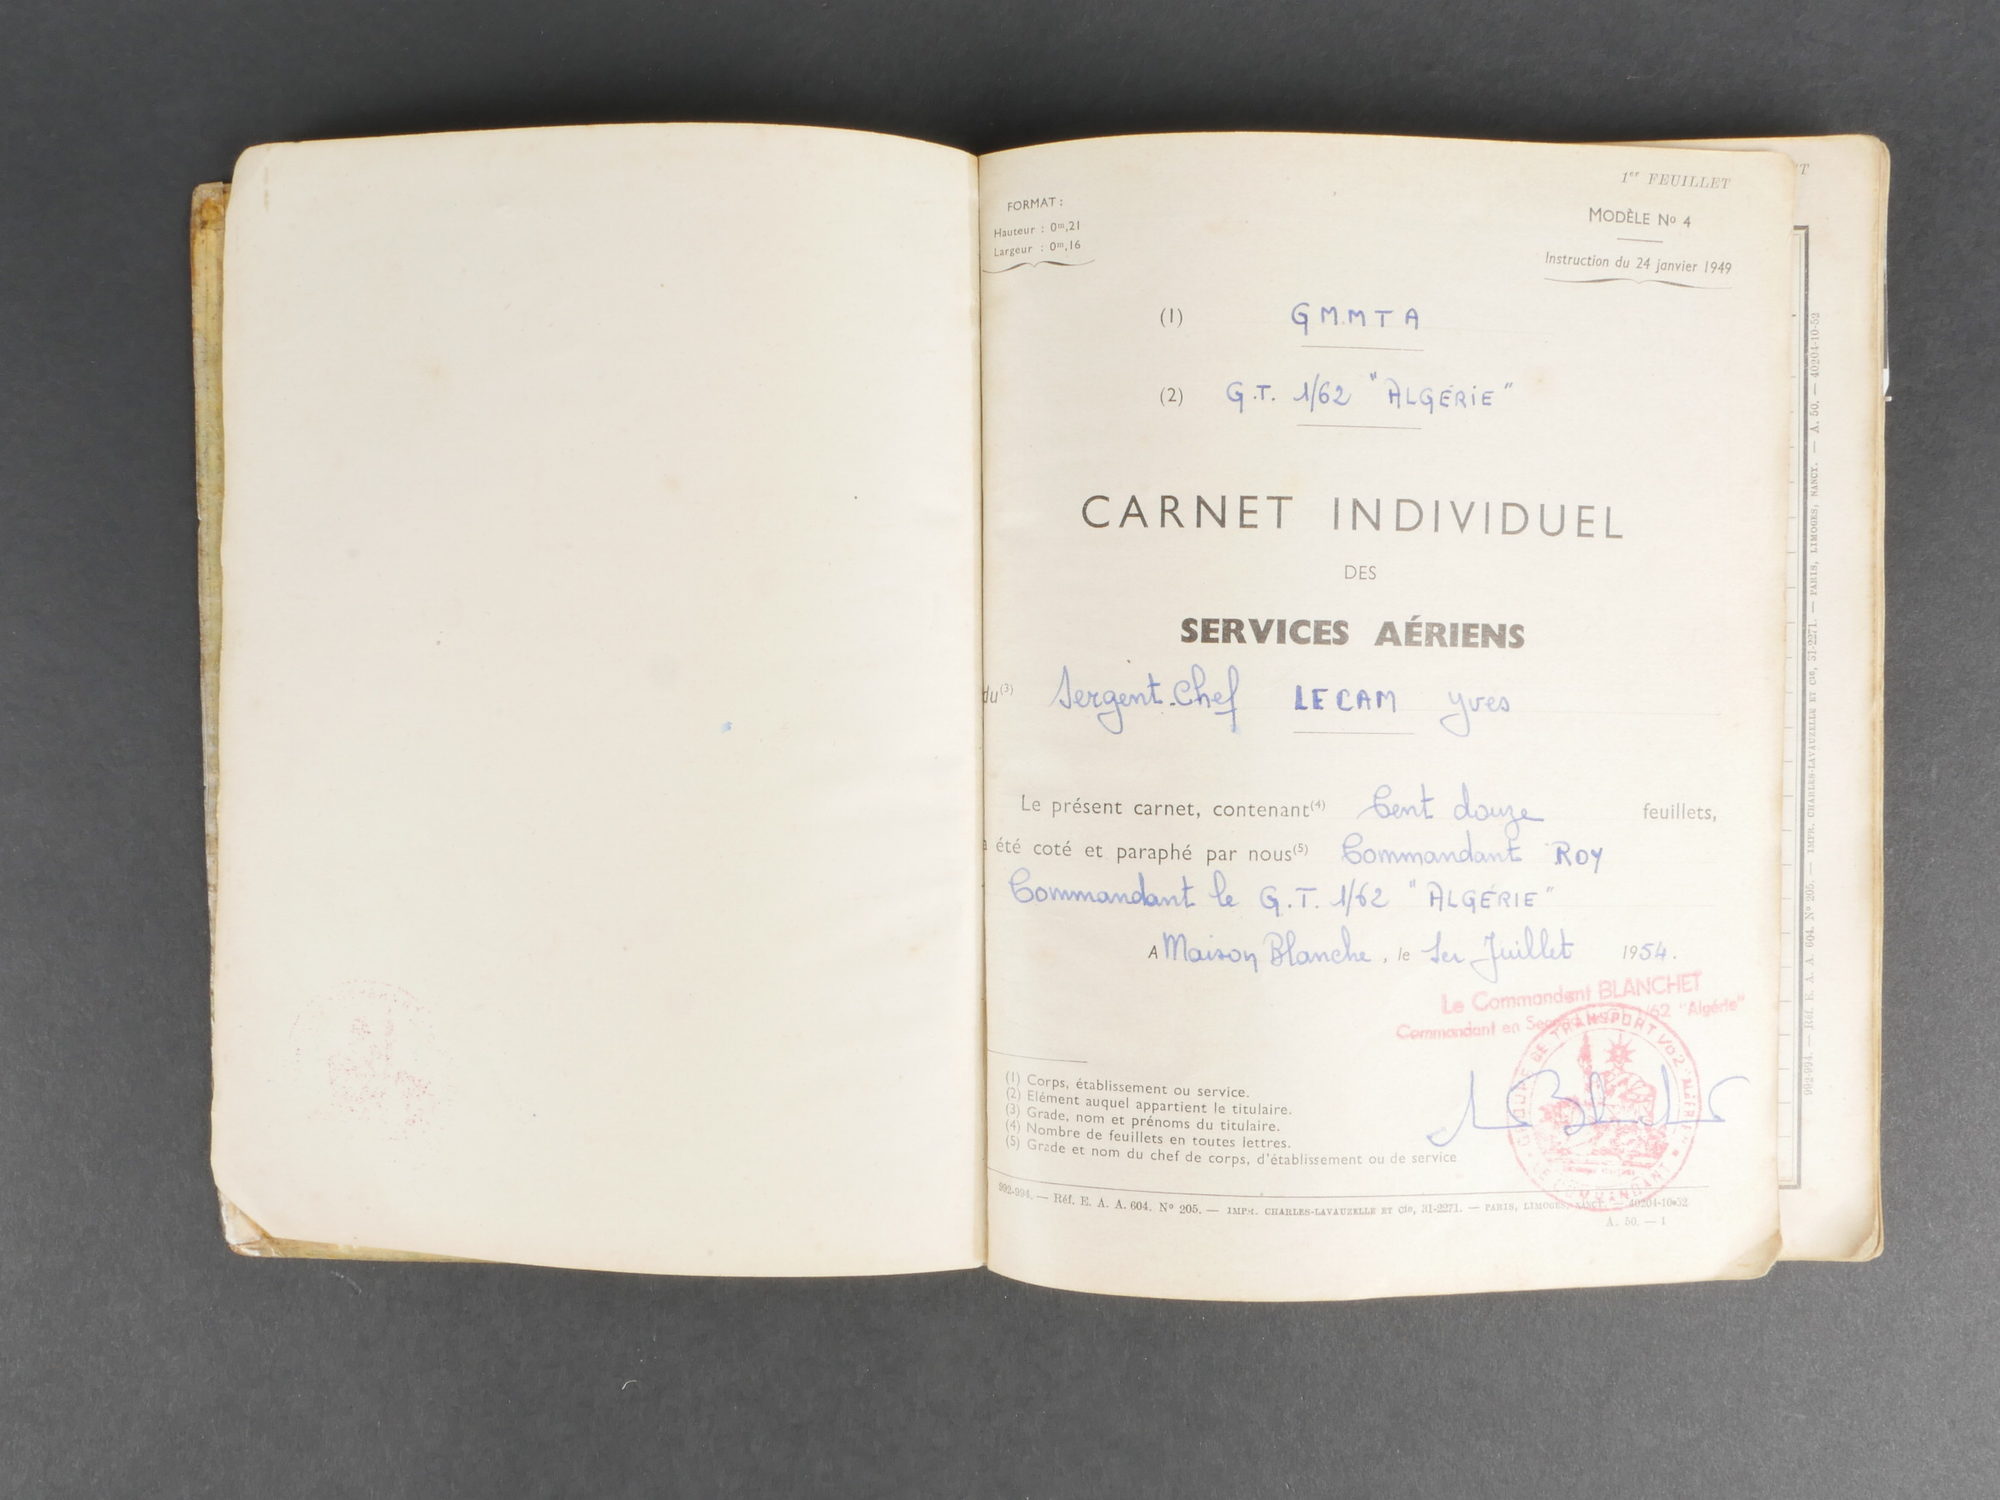 1er FEUILLET
FORMAT :
Hauteur : 0m,21
Largeur : 0m,16
MODÈLE No 4
Instruction du 24 janvier 1949
(1) G M.M T A
(2) G.T. 1/62 "ALGÉRIE"
CARNET INDIVIDUEL
DES
SERVICES AÉRIENS
du(3) Sergent-Chef LECAM Yves
Le présent carnet, contenant(4) Cent douze feuillets,
a été coté et paraphé par nous(5) Commandant ROY
Commandant le G.T. 1/62 "ALGÉRIE"
A Maison Blanche, le 1er Juillet 1954.
Le Commandant BLANCHET
Commandant en 1/62 "Algérie"
GROUPE DE TRANSPORT 1/62 "ALGÉRIE"
LE COMMANDANT
(1) Corps, établissement ou service.
(2) Elément auquel appartient le titulaire.
(3) Grade, nom et prénoms du titulaire.
(4) Nombre de feuillets en toutes lettres.
(5) Grade et nom du chef de corps, d'établissement ou de service
992-994. — Réf. E. A. A. 604. No 205. — IMPR. CHARLES-LAVAUZELLE ET Cie, 31-2271. — PARIS, LIMOGES, NANCY. — 40204-10-52
A. 50. — 1
992-994. — Réf. E. A. A. 604. No 205. — IMPR. CHARLES-LAVAUZELLE ET Cie, 31-2271. — PARIS, LIMOGES, NANCY. — A. 50. — 40204-10-52